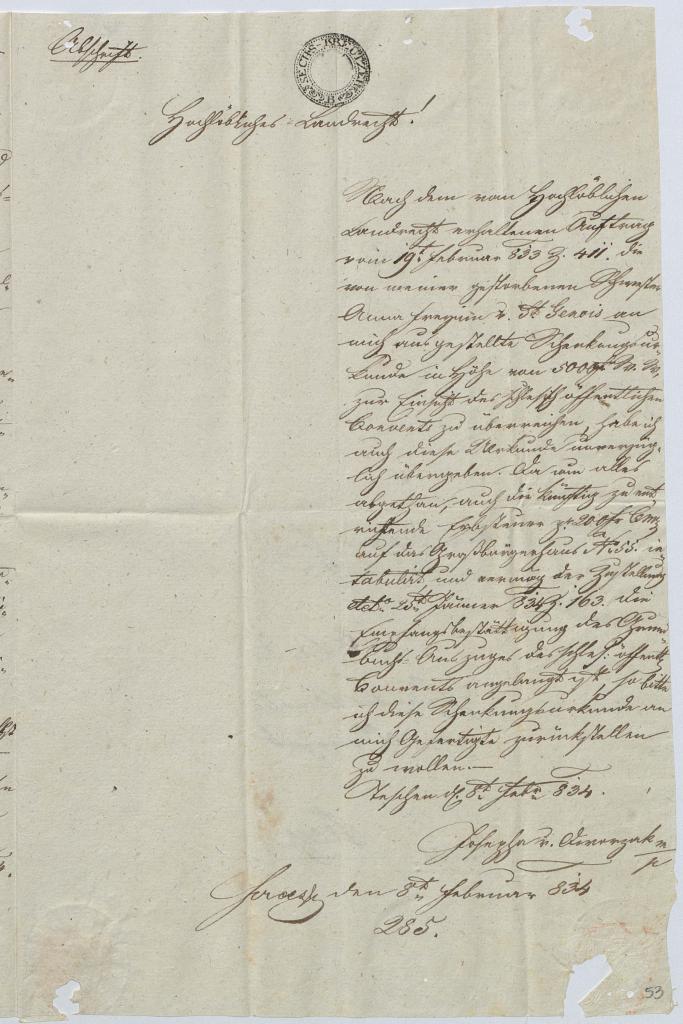 Abschrift.
SECHS KREUTZER
Hochlöbliches Landrecht!
Nach dem vom Hochlöblichen
Landrecht erhaltenen Auftrag
vom 19t. Februar 833 Z. 411. die
von meiner gestorbenen Schwester
Anna Freyiin v. St. Genois an
mich ausgestellte Schenkungsur-
kunde in Höhe von 5000fr W. W.
zur Einsicht des schles. öffentlichen
Convents zu überreichen, habe ich
auch diese Urkunde unverzüg-
lich übergeben. Da nun alles
abgethan, auch die künftig zu ent
richtende Erbsteuer pr 200fr Cmz
auf das Großbürgerhaus No 55. in-
tabulirt und vermög der Zustellung
dcto 25t. Jänner 834 Z. 163. die
Empfangsbestättigung des Grund
buchs-Auszuges des schles: öffentl.
Convents angelangt ist so bitte
ich diese Schenkungsurkunde an
mich Gefertigte zurückstellen
zu wollen.—
Teschen d. 8t. Febr. 834.
Josepha v. Dworzak m/p
den 8t. Februar 834
285.
53